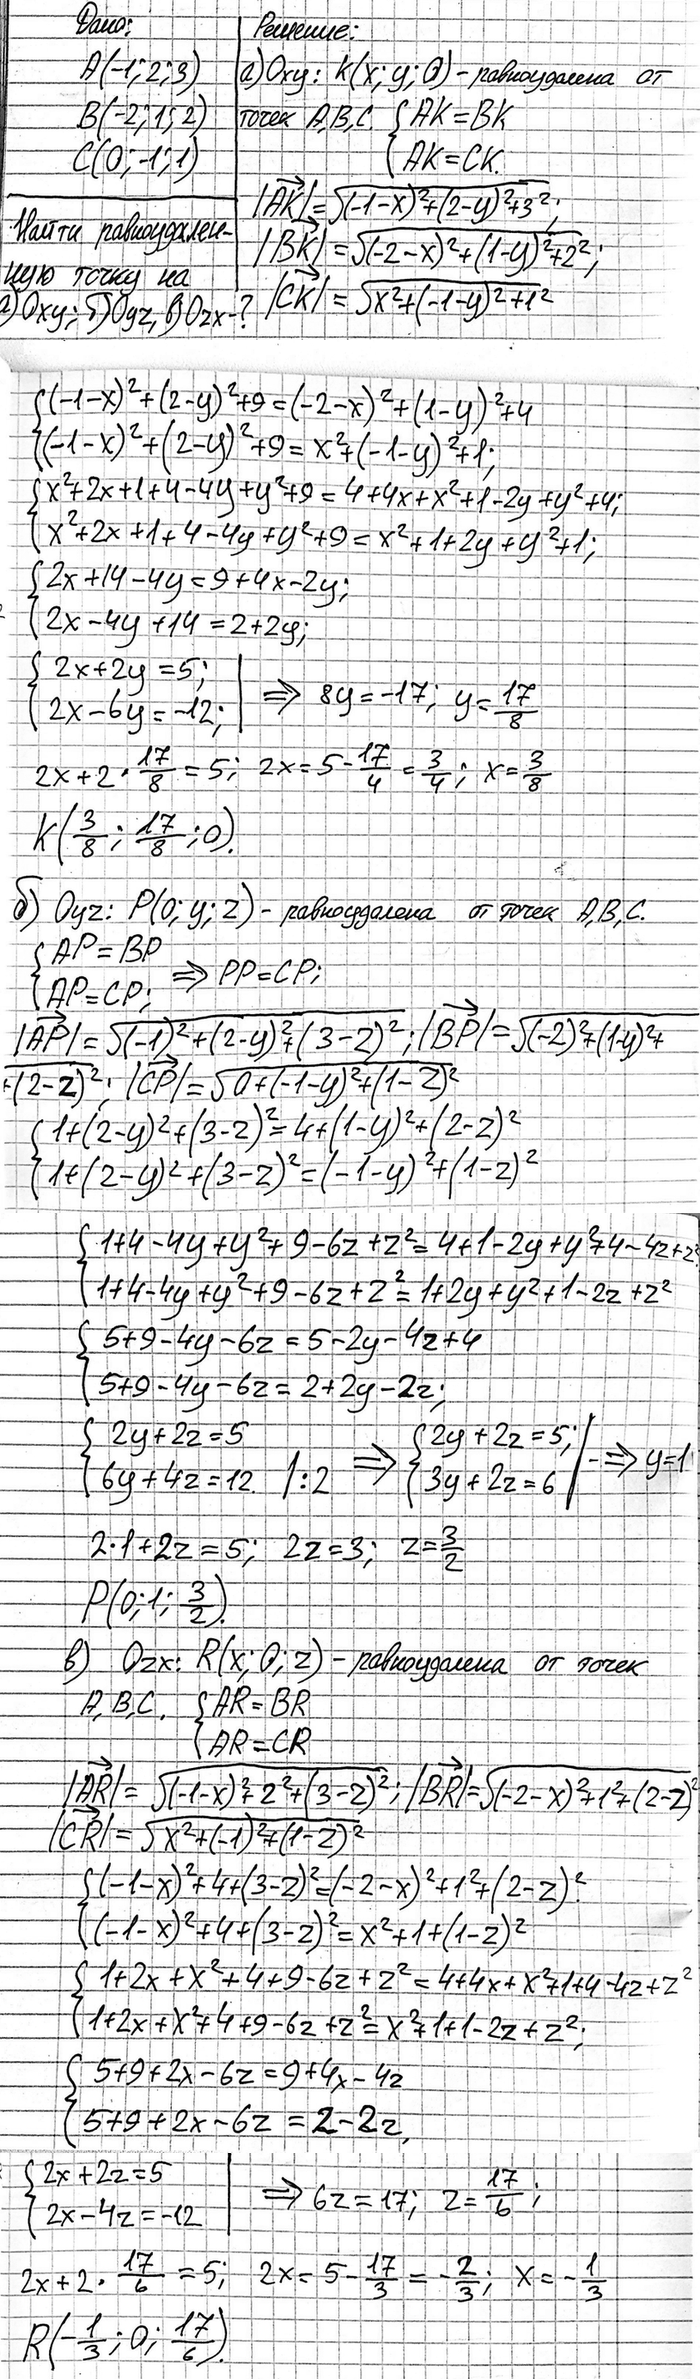 Дано:
A(-1; 2; 3)
B(-2; 1; 2)
C(0; -1; 1)
Найти равноудален-
ную точку на
а) Oxy; б) Oyz, в) Ozx-?
Решение:
а) Oxy: K(x; y; 0) - равноудалена от
точек A, B, C. { AK = BK
{ AK = CK.
|AK| = √(-1-x)²+(2-y)²+3²;
|BK| = √(-2-x)²+(1-y)²+2²;
|CK| = √x²+(-1-y)²+1²
{ (-1-x)²+(2-y)²+9 = (-2-x)²+(1-y)²+4
{ (-1-x)²+(2-y)²+9 = x²+(-1-y)²+1;
{ x²+2x+1+4-4y+y²+9 = 4+4x+x²+1-2y+y²+4;
{ x²+2x+1+4-4y+y²+9 = x²+1+2y+y²+1;
{ 2x+14-4y = 9+4x-2y;
{ 2x-4y+14 = 2+2y;
{ 2x+2y = 5;
{ 2x-6y = -12; | ⇒ 8y = -17; y = 17/8
2x+2·17/8 = 5; 2x = 5-17/4 = 3/4; x = 3/8
K(3/8; 17/8; 0).
б) Oyz: P(0; y; z) - равноудалена от точек A, B, C.
{ AP = BP
{ AP = CP; ⇒ PP = CP;
|AP| = √(-1)²+(2-y)²+(3-z)²; |BP| = √(-2)²+(1-y)²+
+(2-z)²; |CP| = √0+(-1-y)²+(1-z)²
{ 1+(2-y)²+(3-z)² = 4+(1-y)²+(2-z)²
{ 1+(2-y)²+(3-z)² = (-1-y)²+(1-z)²
{ 1+4-4y+y²+9-6z+z² = 4+1-2y+y²+4-4z+z²
{ 1+4-4y+y²+9-6z+z² = 1+2y+y²+1-2z+z²
{ 5+9-4y-6z = 5-2y-4z+4
{ 5+9-4y-6z = 2+2y-2z;
{ 2y+2z = 5
{ 6y+4z = 12. |:2 ⇒ { 2y+2z = 5;
{ 3y+2z = 6 | - ⇒ y = 1
2·1+2z = 5; 2z = 3; z = 3/2
P(0; 1; 3/2).
в) Ozx: R(x; 0; z) - равноудалена от точек
A, B, C. { AR = BR
{ AR = CR
|AR| = √(-1-x)²+2²+(3-z)²; |BR| = √(-2-x)²+1²+(2-z)²
|CR| = √x²+(-1)²+(1-z)²
{ (-1-x)²+4+(3-z)² = (-2-x)²+1²+(2-z)²
{ (-1-x)²+4+(3-z)² = x²+1+(1-z)²
{ 1+2x+x²+4+9-6z+z² = 4+4x+x²+1+4-4z+z²
{ 1+2x+x²+4+9-6z+z² = x²+1+1-2z+z²;
{ 5+9+2x-6z = 9+4x-4z
{ 5+9+2x-6z = 2-2z,
{ 2x+2z = 5
{ 2x-4z = -12 | ⇒ 6z = 17; z = 17/6;
2x+2·17/6 = 5; 2x = 5-17/3 = -2/3; x = -1/3
R(-1/3; 0; 17/6).